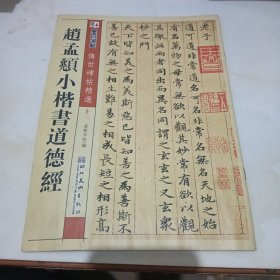 墨點
傳世碑帖精選
趙孟頫小楷書道德經
老子
道可道非常道名可名非常名無名天地之始
有名萬物之母常無欲以觀其妙常有欲以觀
其徼此兩者同出而異名同謂之玄玄之又玄衆
妙之門
天下皆知美之為美斯惡已皆知善之為善斯不
善已故有無之相生難易之相成長短之相形高